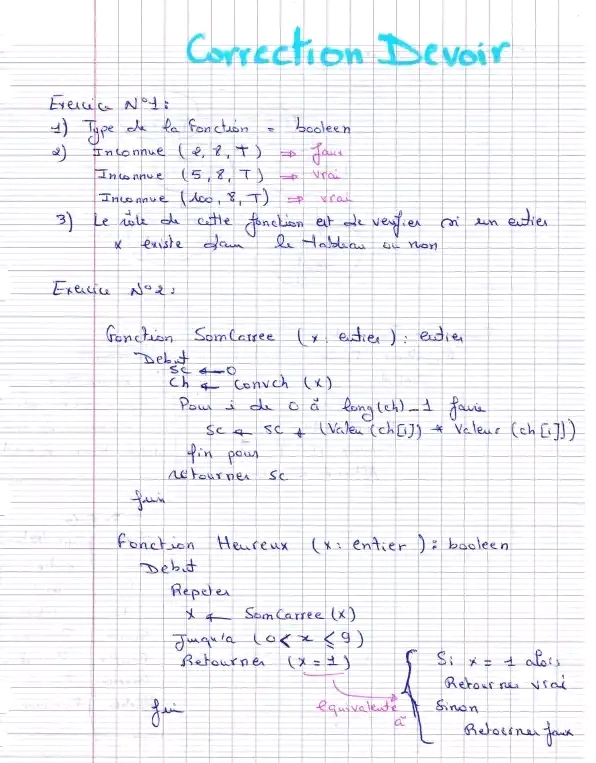 Correction Devoir
Exercice N°1:
1) Type de la fonction = booleen
2) Inconnue (2, 8, T) ⇒ faux
Inconnue (5, 8, T) ⇒ vrai
Inconnue (100, 8, T) ⇒ vrai
3) Le rôle de cette fonction est de verifier si un entier
x existe dans le tableau ou non
Exercice N°2:
Fonction SomCarree (x: entier): entier
Debut
SC ← 0
Ch ← Convch (x)
Pour i de 0 à long(ch)-1 faire
SC ← SC + (Valeu (ch[i]) * Valeur (ch[i]))
fin pour
retourner SC
fin
Fonction Heureux (x: entier): booleen
Debut
Repeter
x ← SomCarree (x)
Jusqu'a (0 < x ≤ 9)
Retourner (x = 1)
fin
equivalente
à
Si x = 1 alors
Retourner vrai
Sinon
Retourner faux